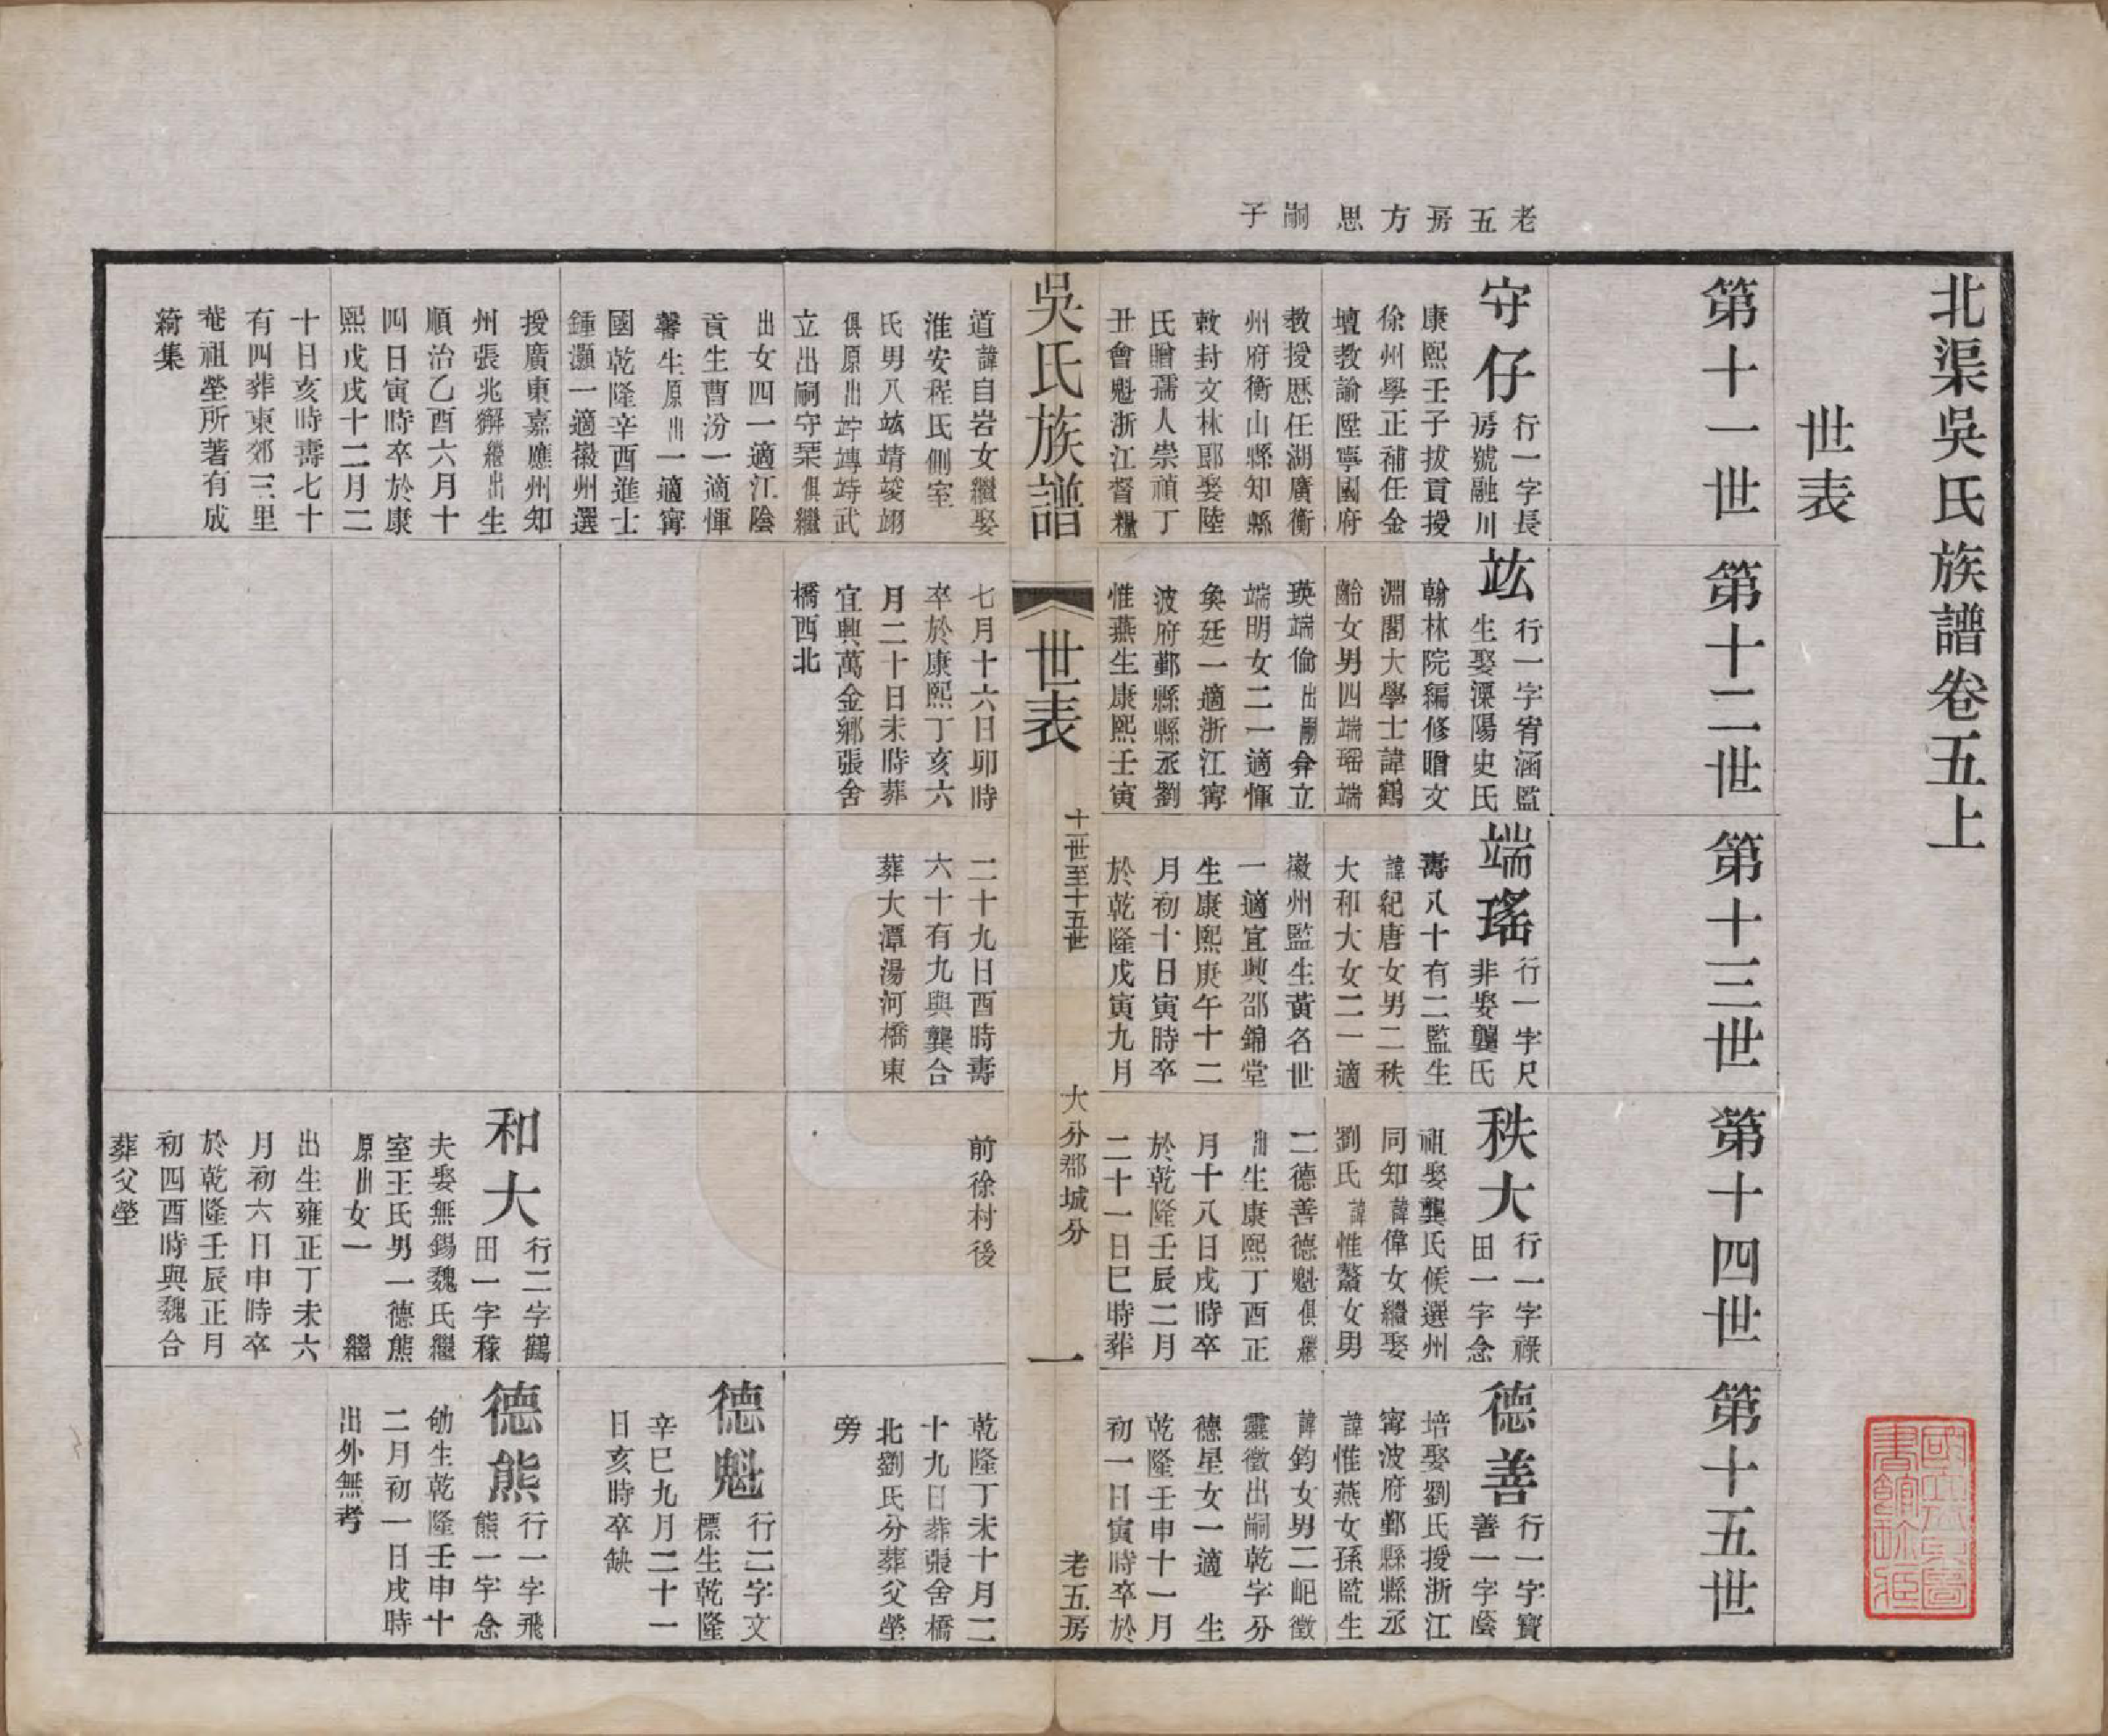 北渠吳氏族譜卷五上
世表
第十一世
第十二世
第十三世
第十四世
第十五世
老五房方思嗣子
守仔
行一字長
房號融川
康熙壬子拔貢授
徐州學正補任金
壇教諭陞寧國府
教授歷任湖廣衡
州府衡山縣知縣
敕封文林郎娶陸
氏贈孺人崇禎丁
丑會魁浙江督糧
道諱自岩女繼娶
淮安程氏側室
氏男八竑靖竣翊
俱原出竚竱竢武
立出嗣守琹俱繼
出女四一適江陰
貢生曹汾一適惲
馨生原出一適甯
國乾隆辛酉進士
鍾灝一適徽州選
授廣東嘉應州知
州張兆獬繼出生
順治乙酉六月十
四日寅時卒於康
熙戊戌十二月二
十日亥時壽七十
有四葬東郊三里
菴祖塋所著有成
綺集
竑
行一字宥涵監
生娶溧陽史氏
翰林院編修贈文
淵閣大學士諱鶴
齡女男四端瑤端
瑛端倫出嗣弅立
端明女二一適惲
奐廷一適浙江甯
波府鄞縣縣丞劉
惟燕生康熙壬寅
七月十六日卯時
卒於康熙丁亥六
月二十日未時葬
宜興萬金鄉張舍
橋西北
端瑤
行一字尺
非娶龔氏
壽八十有二監生
諱紀唐女男二秩
大和大女二一適
徽州監生黃名世
一適宜興邵錦堂
生康熙庚午十二
月初十日寅時卒
於乾隆戊寅九月
二十九日酉時壽
六十有九與龔合
葬大潭湯河橋東
秩大
行一字祿
田一字念
祖娶龔氏候選州
同知諱偉女繼娶
劉氏諱惟鰲女男
二德善德魁俱繼
出生康熙丁酉正
月十八日戌時卒
於乾隆壬辰二月
二十一日巳時葬
前徐村後
和大
行二字鶴
田一字稼
夫娶無錫魏氏繼
室王氏男一德熊
原出女一 繼
出生雍正丁未六
月初六日申時卒
於乾隆壬辰正月
初四酉時與魏合
葬父塋
德善
行一字寶
善一字蔭
培娶劉氏授浙江
甯波府鄞縣縣丞
諱惟燕女孫監生
諱鈞女男二屺徵
靈徵出嗣乾字分
德星女一適 生
乾隆壬申十一月
初一日寅時卒於
乾隆丁未十月二
十九日葬張舍橋
北劉氏分葬父塋
旁
德魁
行二字文
標生乾隆
辛巳九月二十一
日亥時卒缺
德熊
行一字飛
熊一字念
劬生乾隆壬申十
二月初一日戌時
出外無考
吳氏族譜
世表
十一世至十五世
大分郡城分
一
老五房